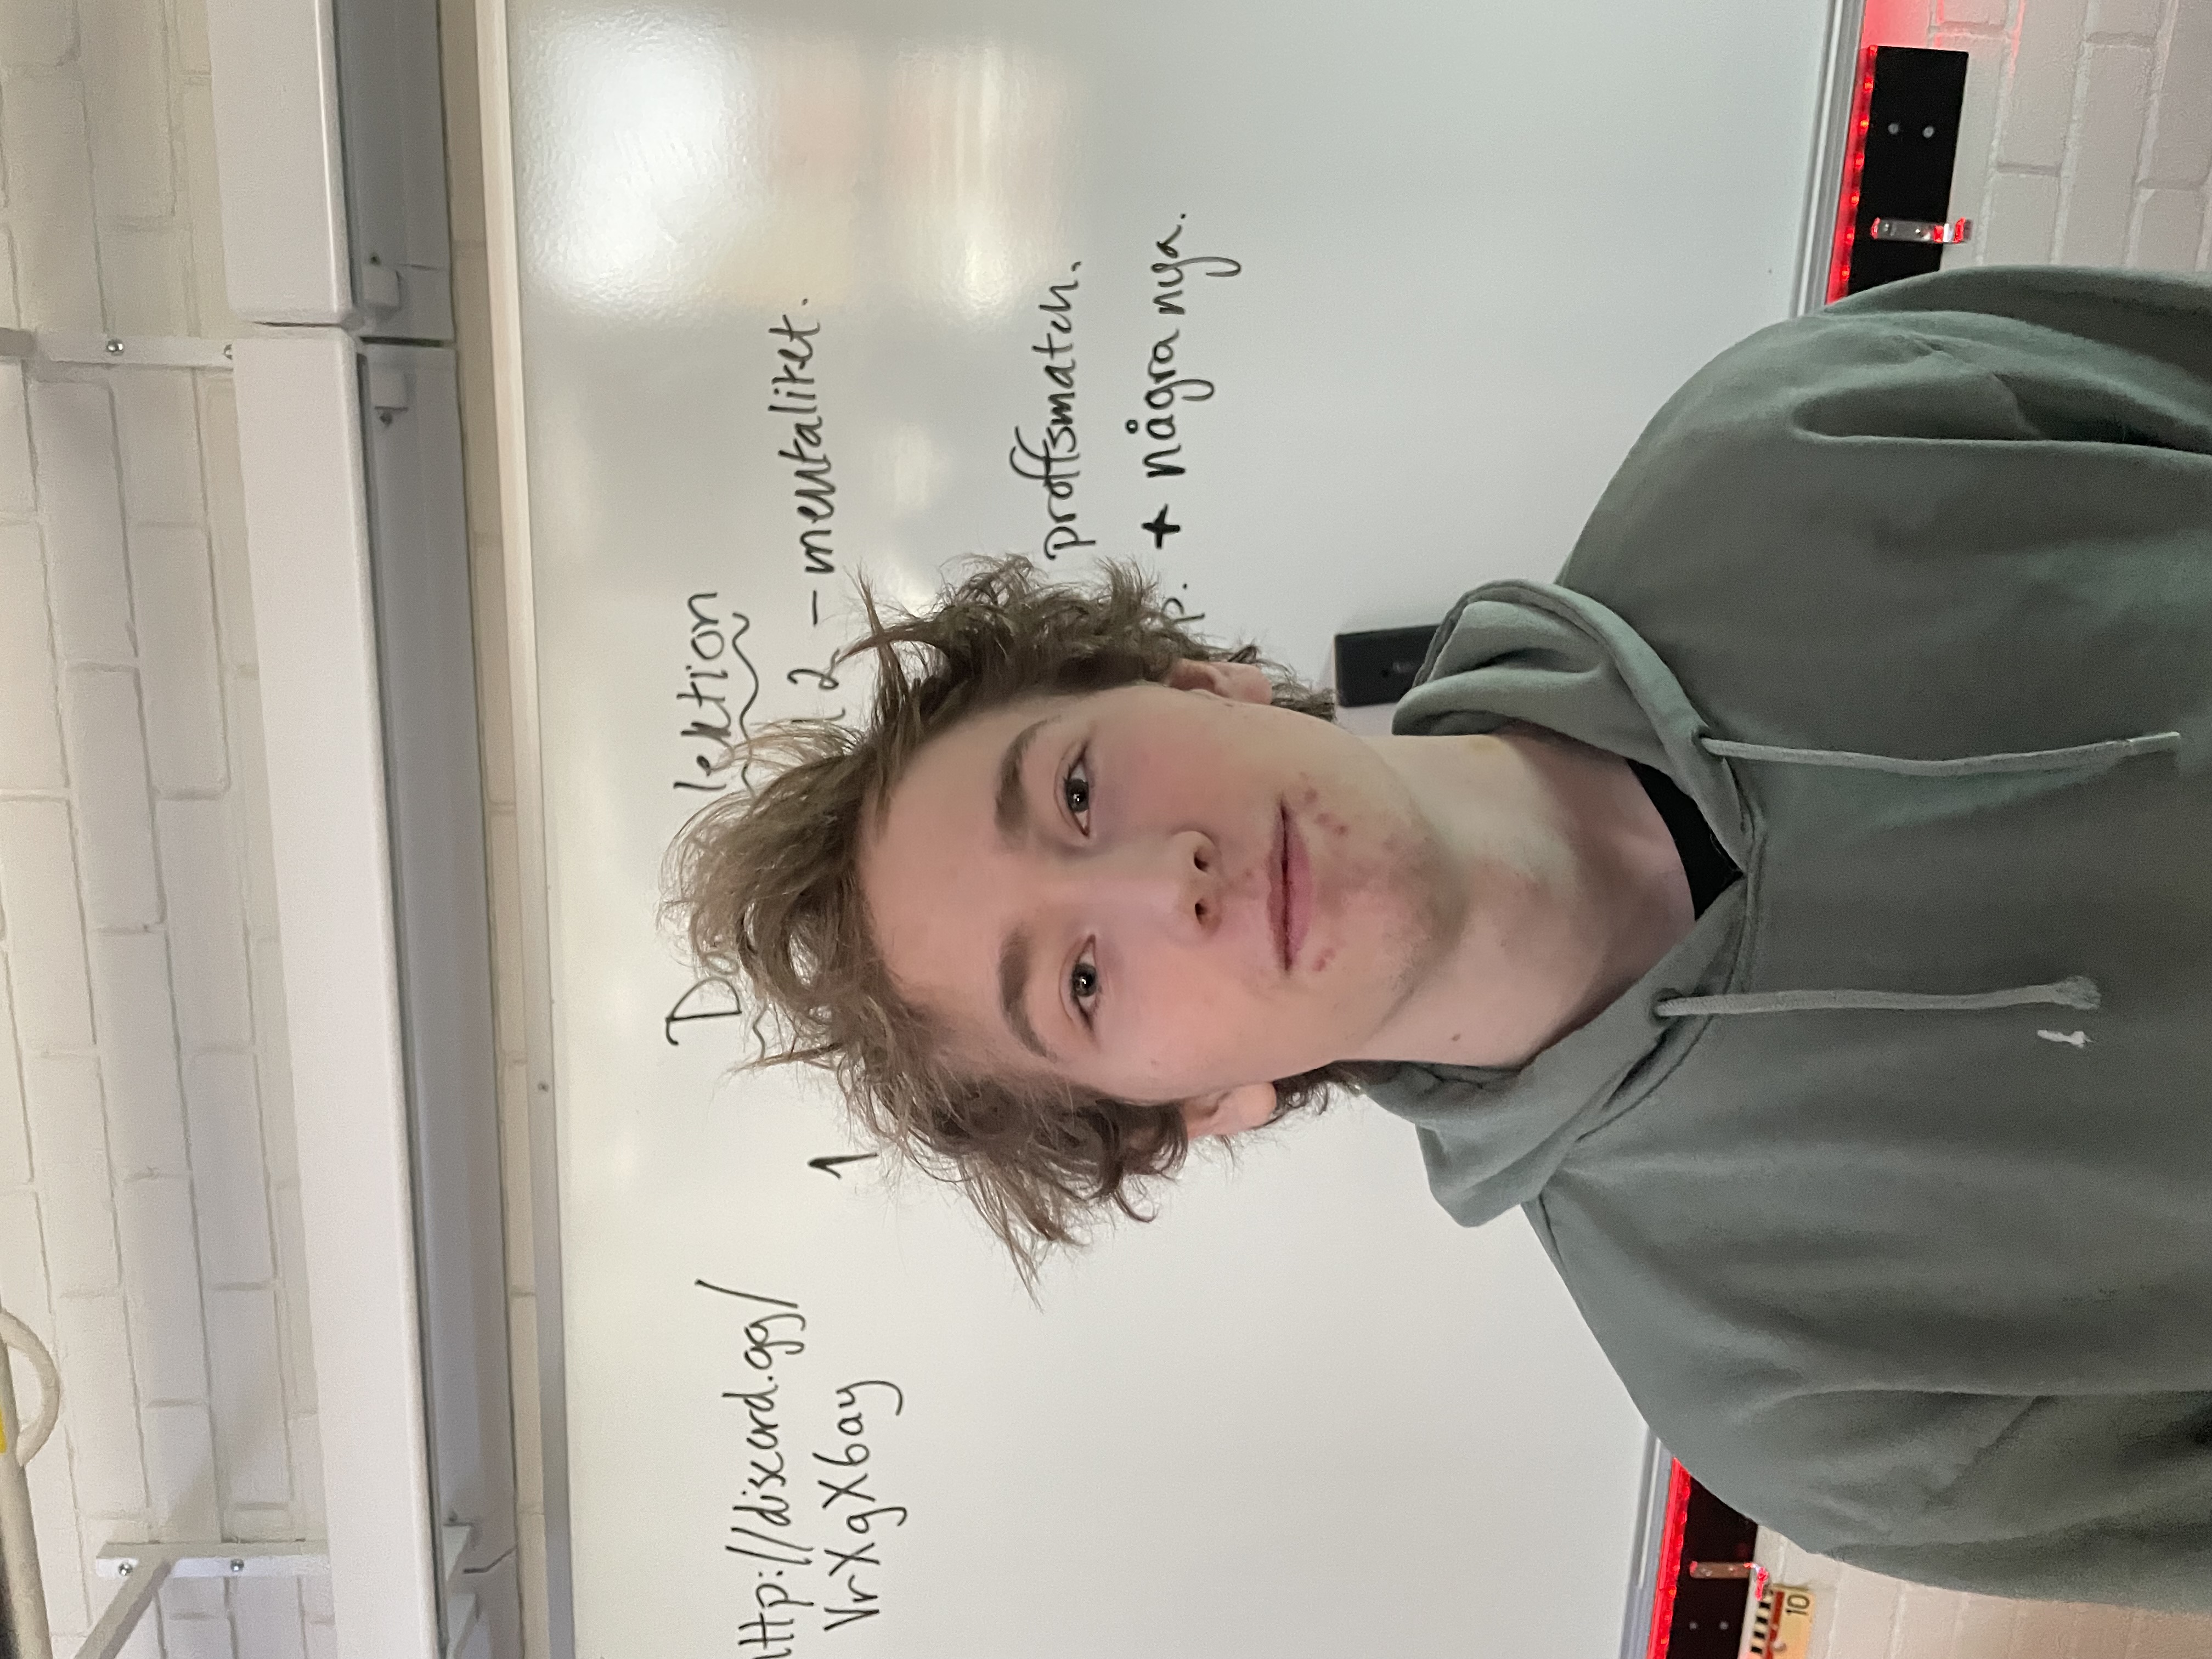 http://discord.gg/
VrXgX6ay
lektion
1
2 - mentalitet.
proffsmatch.
p. + några nya.
10